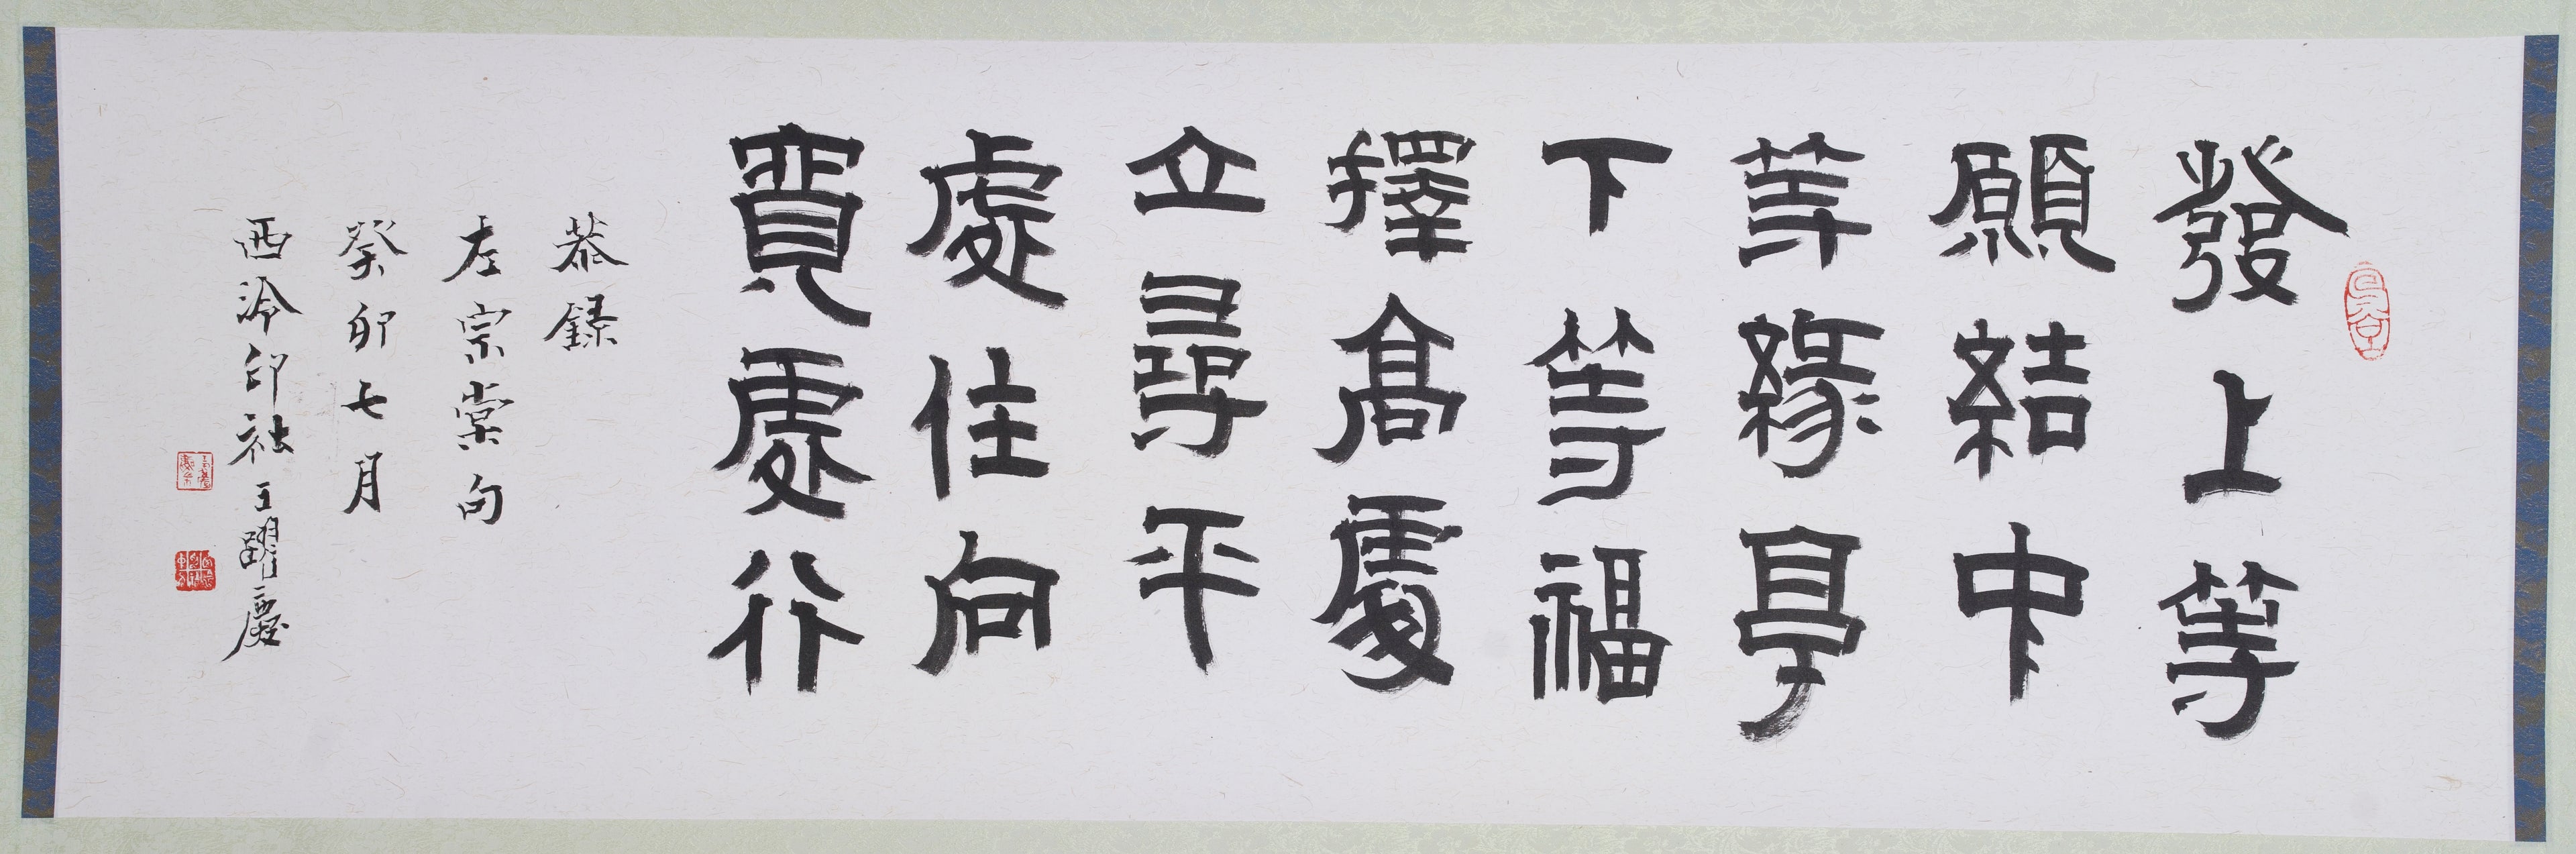 發上等
願結中
等緣享
下等福
擇高處
立尋平
處住向
寬處行
恭錄
左宗棠句
癸卯七月
西泠印社王躍慶